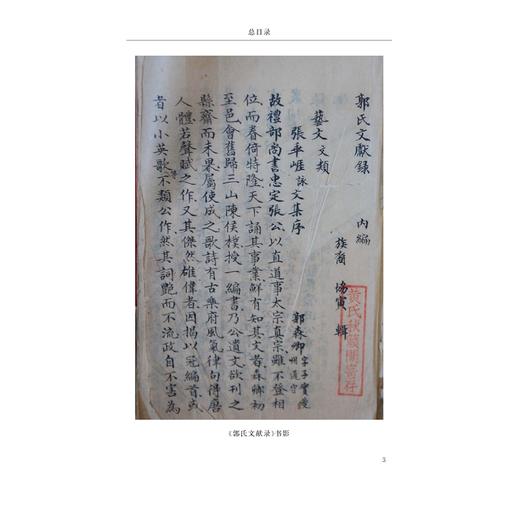 总目录
郭氏文獻錄 內編
族裔 協寅 輯
藝文 文類
張乖崖詠文集序
郭森卿 字子
故禮部尚書忠定張公以直道事太宗真宗雖不登相
位而眷倚特隆天下誦其事業鮮有知其文者森卿初
至邑會舊歸三山陳侯樸授一編書乃公遺文欲刊之
縣齋而未果屬使成之歌詩有古樂府風氣律句得唐
人體若聲賦之作又其傑然雄偉者因揭以冠編首或
者以小英歌不類公作然其詞艷而不流政自不害為
黃氏秋籟閣
《郭氏文献录》书影
3